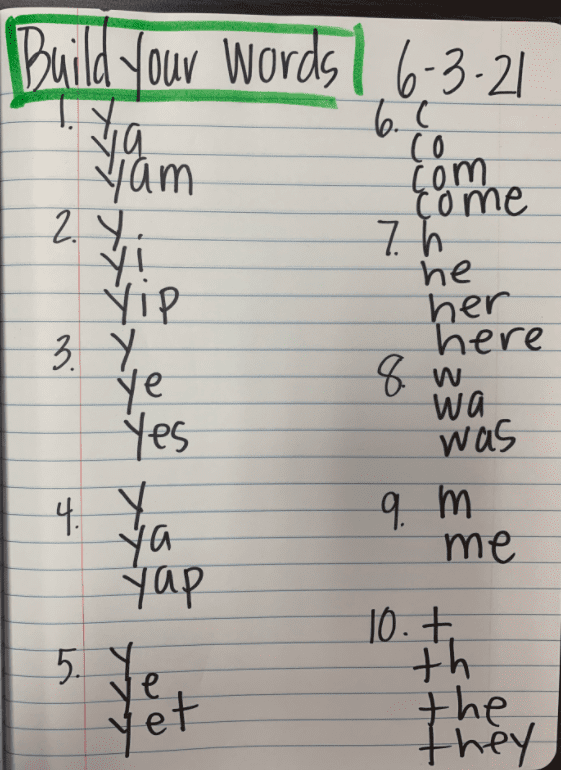 Build Your Words
6-3-21
1. y
ya
yam
2. y.
yi
yip
3. y
ye
yes
4. y
ya
yap
5. y
ye
yet
6. c
co
com
come
7. h
he
her
here
8. w
wa
was
9. m
me
10. t
th
the
they